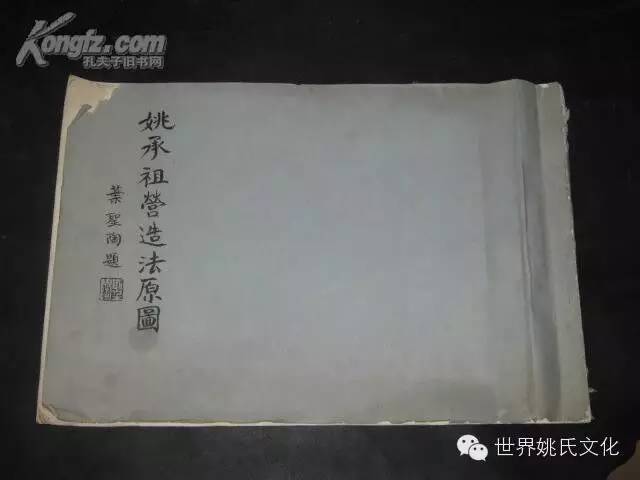 Kongfz.com
孔夫子旧书网
姚承祖營造法原圖
葉聖陶題
世界姚氏文化